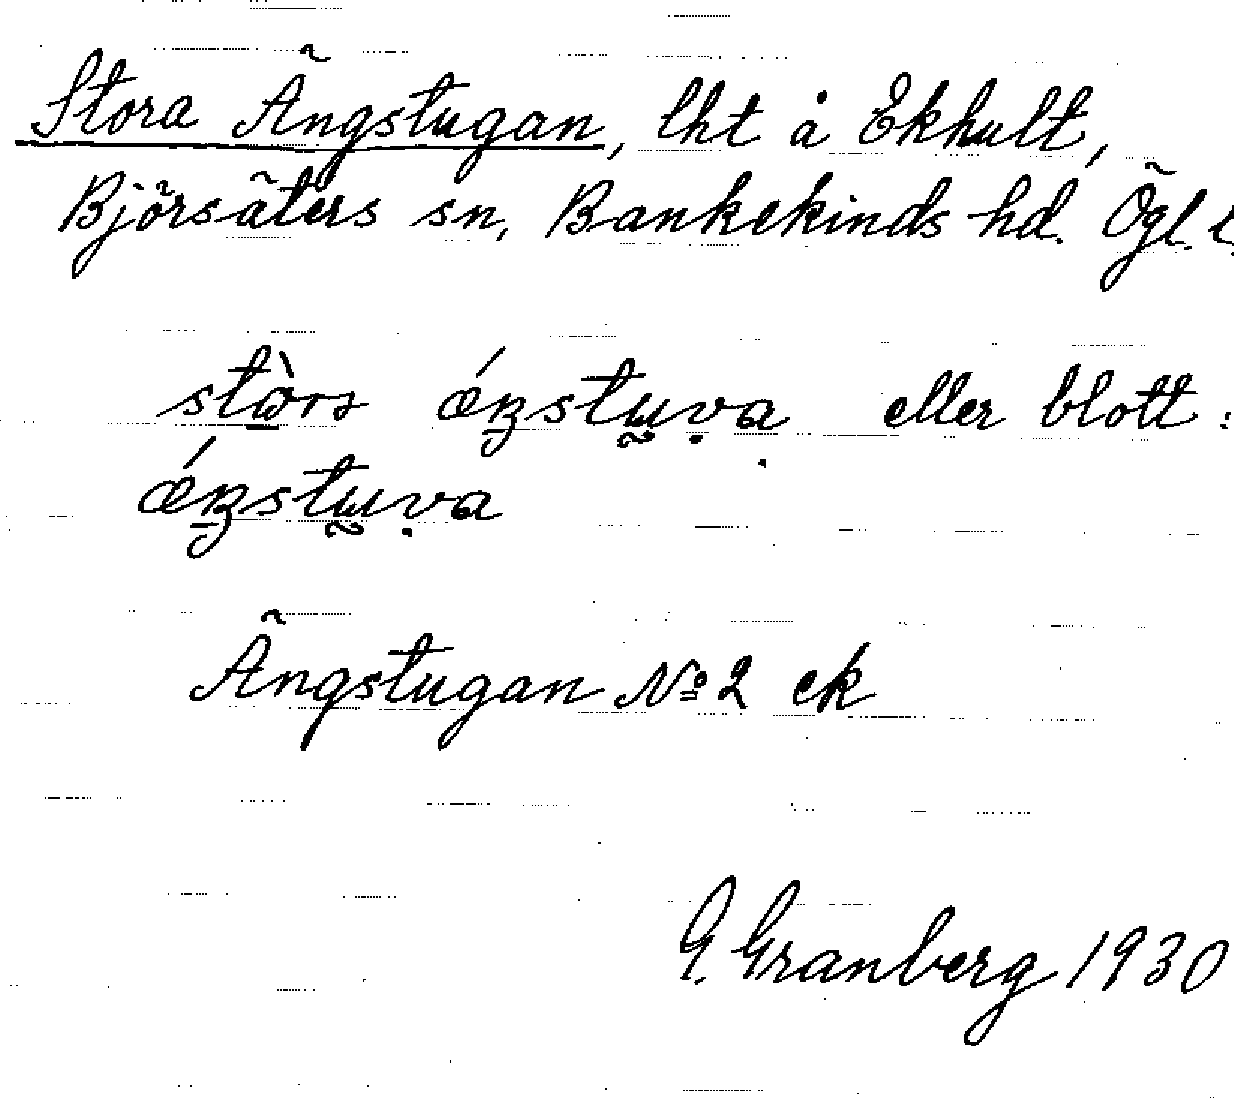 Stora Ängstugan, lht å Ekhult,
Björsäters sn, Bankekinds hd. Ögl. l.
eller blott:
Ängstugan No 2 ek
G. Granberg 1930